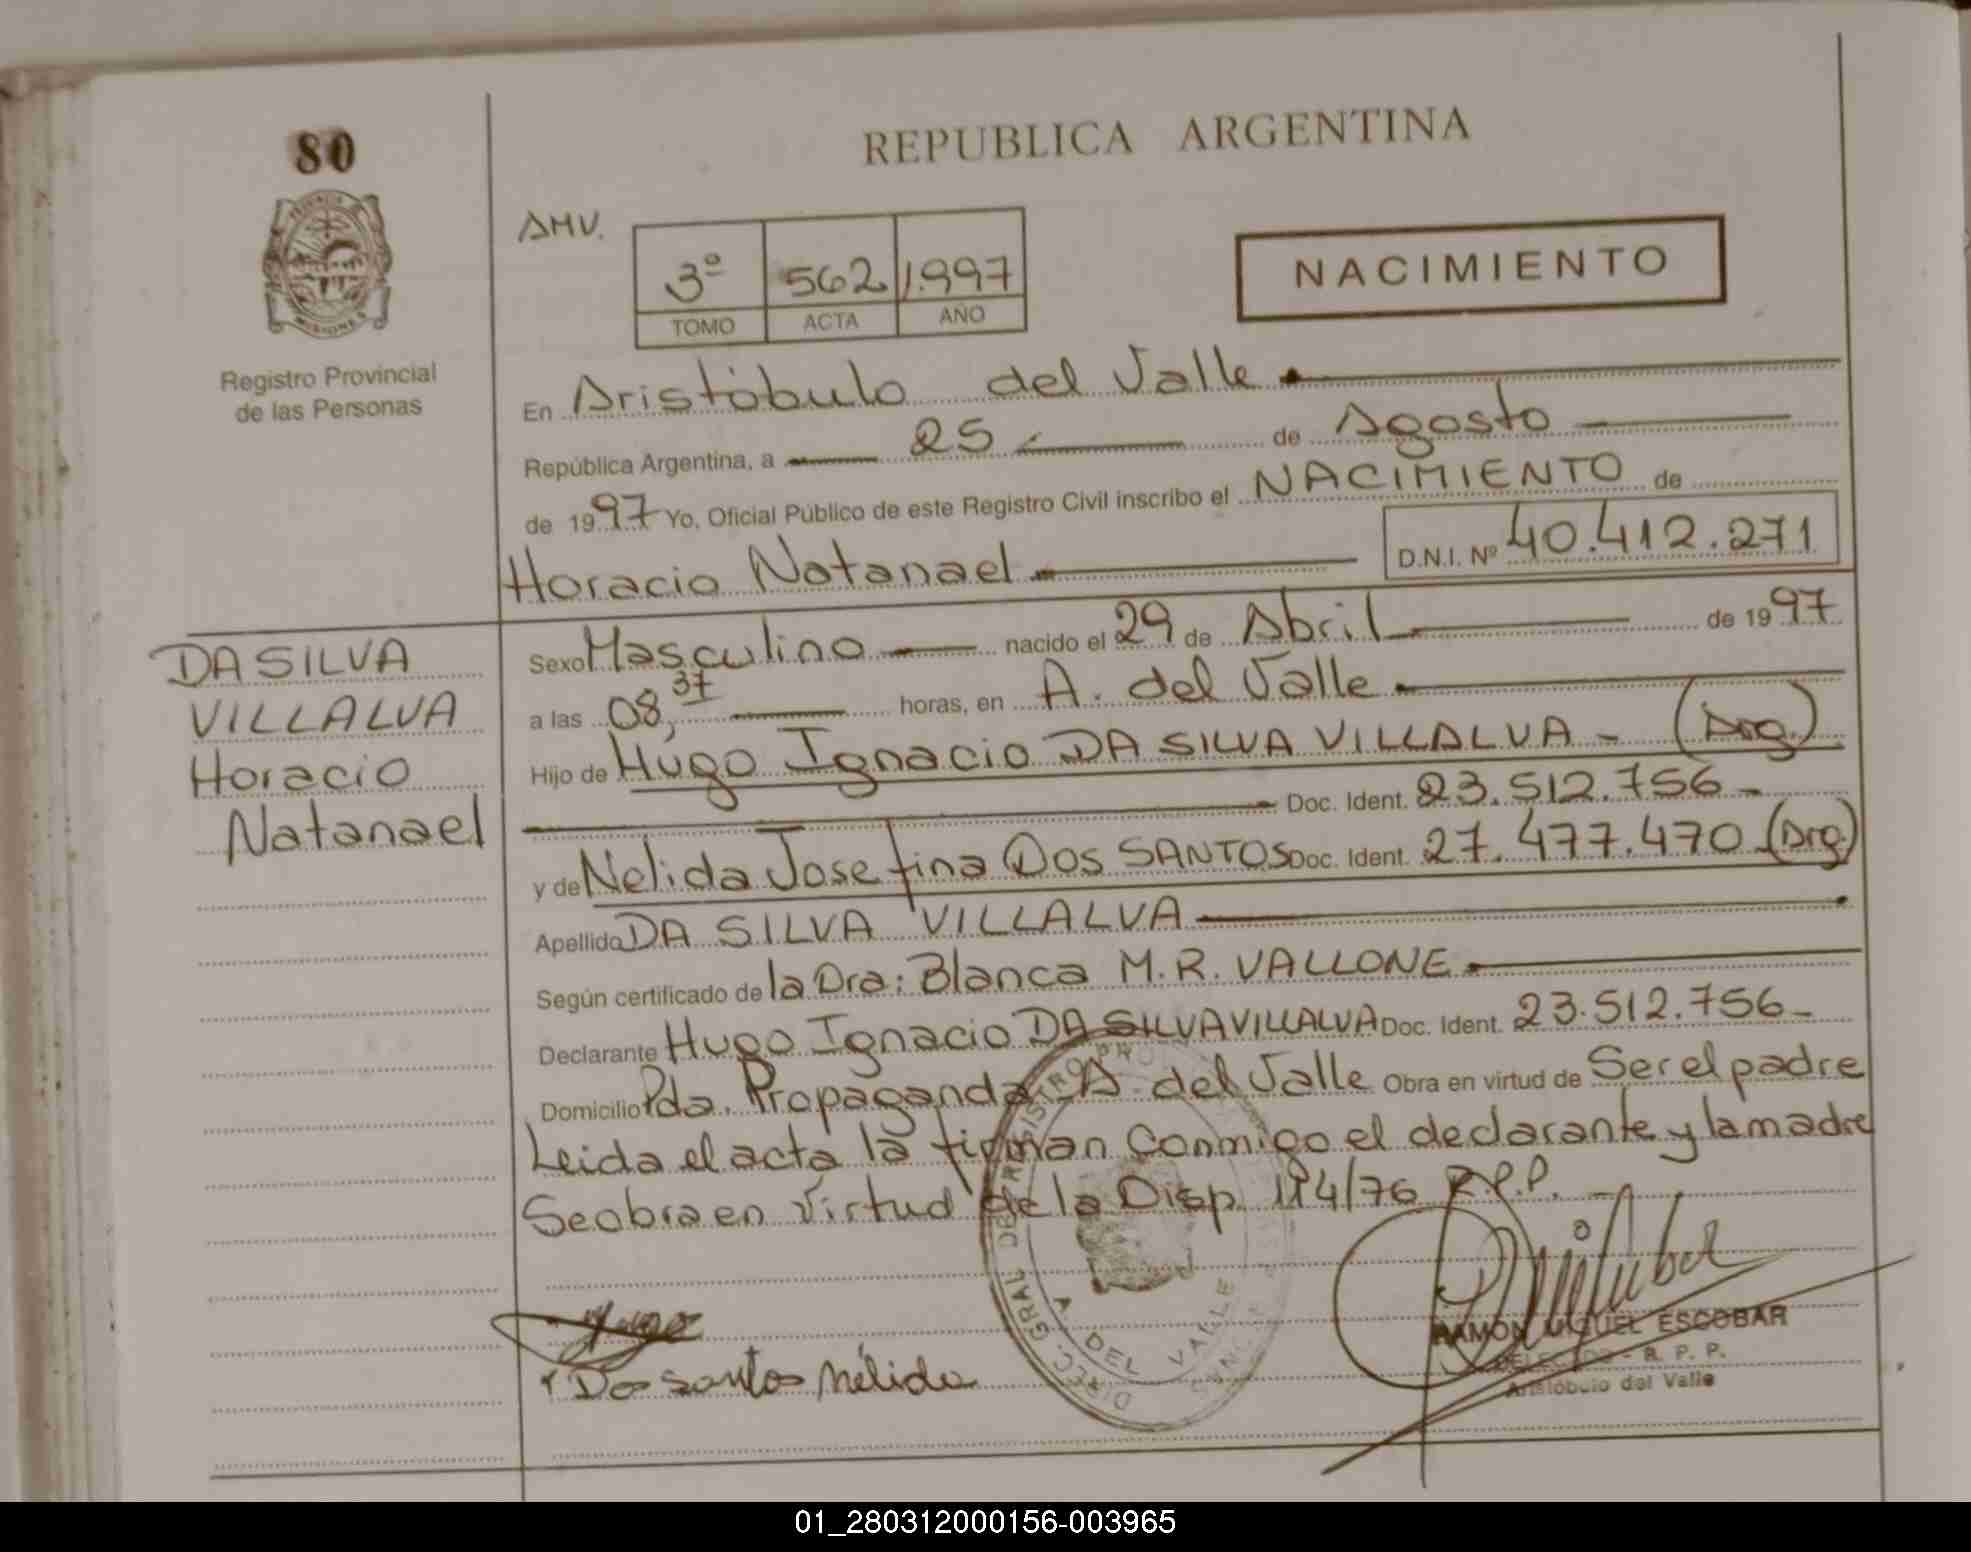 80
REPUBLICA ARGENTINA
AMV.
3º 562 1.997
TOMO ACTA AÑO
NACIMIENTO
MISIONES
Registro Provincial
de las Personas
En Aristóbulo del Valle
República Argentina, a 25 de Agosto
de 1997 Yo, Oficial Público de este Registro Civil inscribo el NACIMIENTO de
Horacio Natanael D.N.I. Nº 40.412.271
DA SILVA
VILLALVA
Horacio
Natanael
Sexo Masculino nacido el 29 de Abril de 1997
a las 08,37 horas, en A. del Valle
Hijo de Hugo Ignacio DA SILVA VILLALVA - (Arg.)
Doc. Ident. 23.512.756-
y de Nelida Josefina Dos SANTOS Doc. Ident. 27.477.470 (Arg.)
Apellido DA SILVA VILLALVA
Según certificado de la Dra: Blanca M.R. VALLONE
Declarante Hugo Ignacio DA SILVA VILLALVA Doc. Ident. 23.512.756-
Domicilio Pda. Propaganda A. del Valle Obra en virtud de Ser el padre
Leida el acta la firman conmigo el declarante y la madre
Se obra en virtud de la Disp. 114/76 R.P.P.
DIREC. GRAL DE REGISTRO PRO
A. DEL VALLE
Hugo
Dos santos Nélida
RAMON MIGUEL ESCOBAR
R. P. P.
Aristóbulo del Valle
01_280312000156-003965